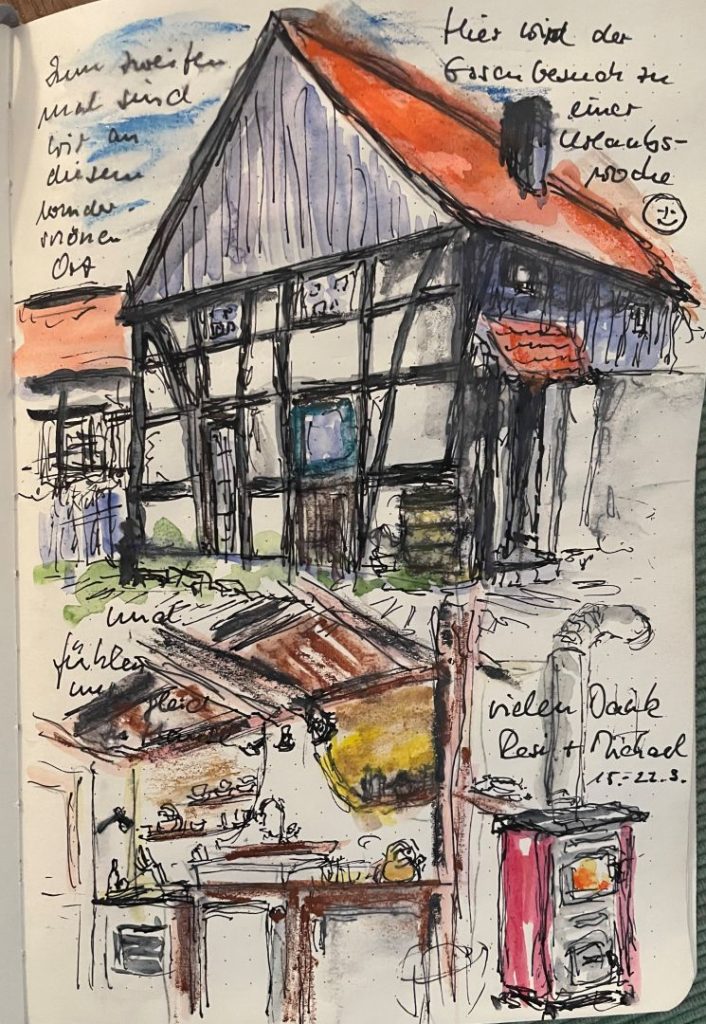 Zum zweiten
mal sind
wir an
diesem
wunder-
schönen
Ort
Hier wird der
Essen besuch zu
einer
Urlaubs-
woche
und
fühlen
uns gleich
vielen Dank
+ Michael
15.-22.3.